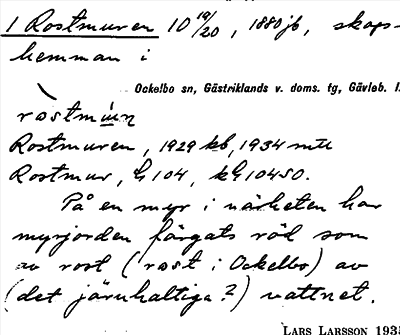 1 Rostmuren 10 19/20, 1880 jb, skogs-
hemman i
Ockelbo sn, Gästriklands v. doms. tg, Gävleb. l.
Rostmuren, 1929 kb, 1934 mtl
Rostmur, G 104, kG 10450.
På en myr i närheten har
myrjorden färgats röd som
av rost (rost i Ockelbo) av
(det järnhaltiga?) vattnet.
LARS LARSSON 1935